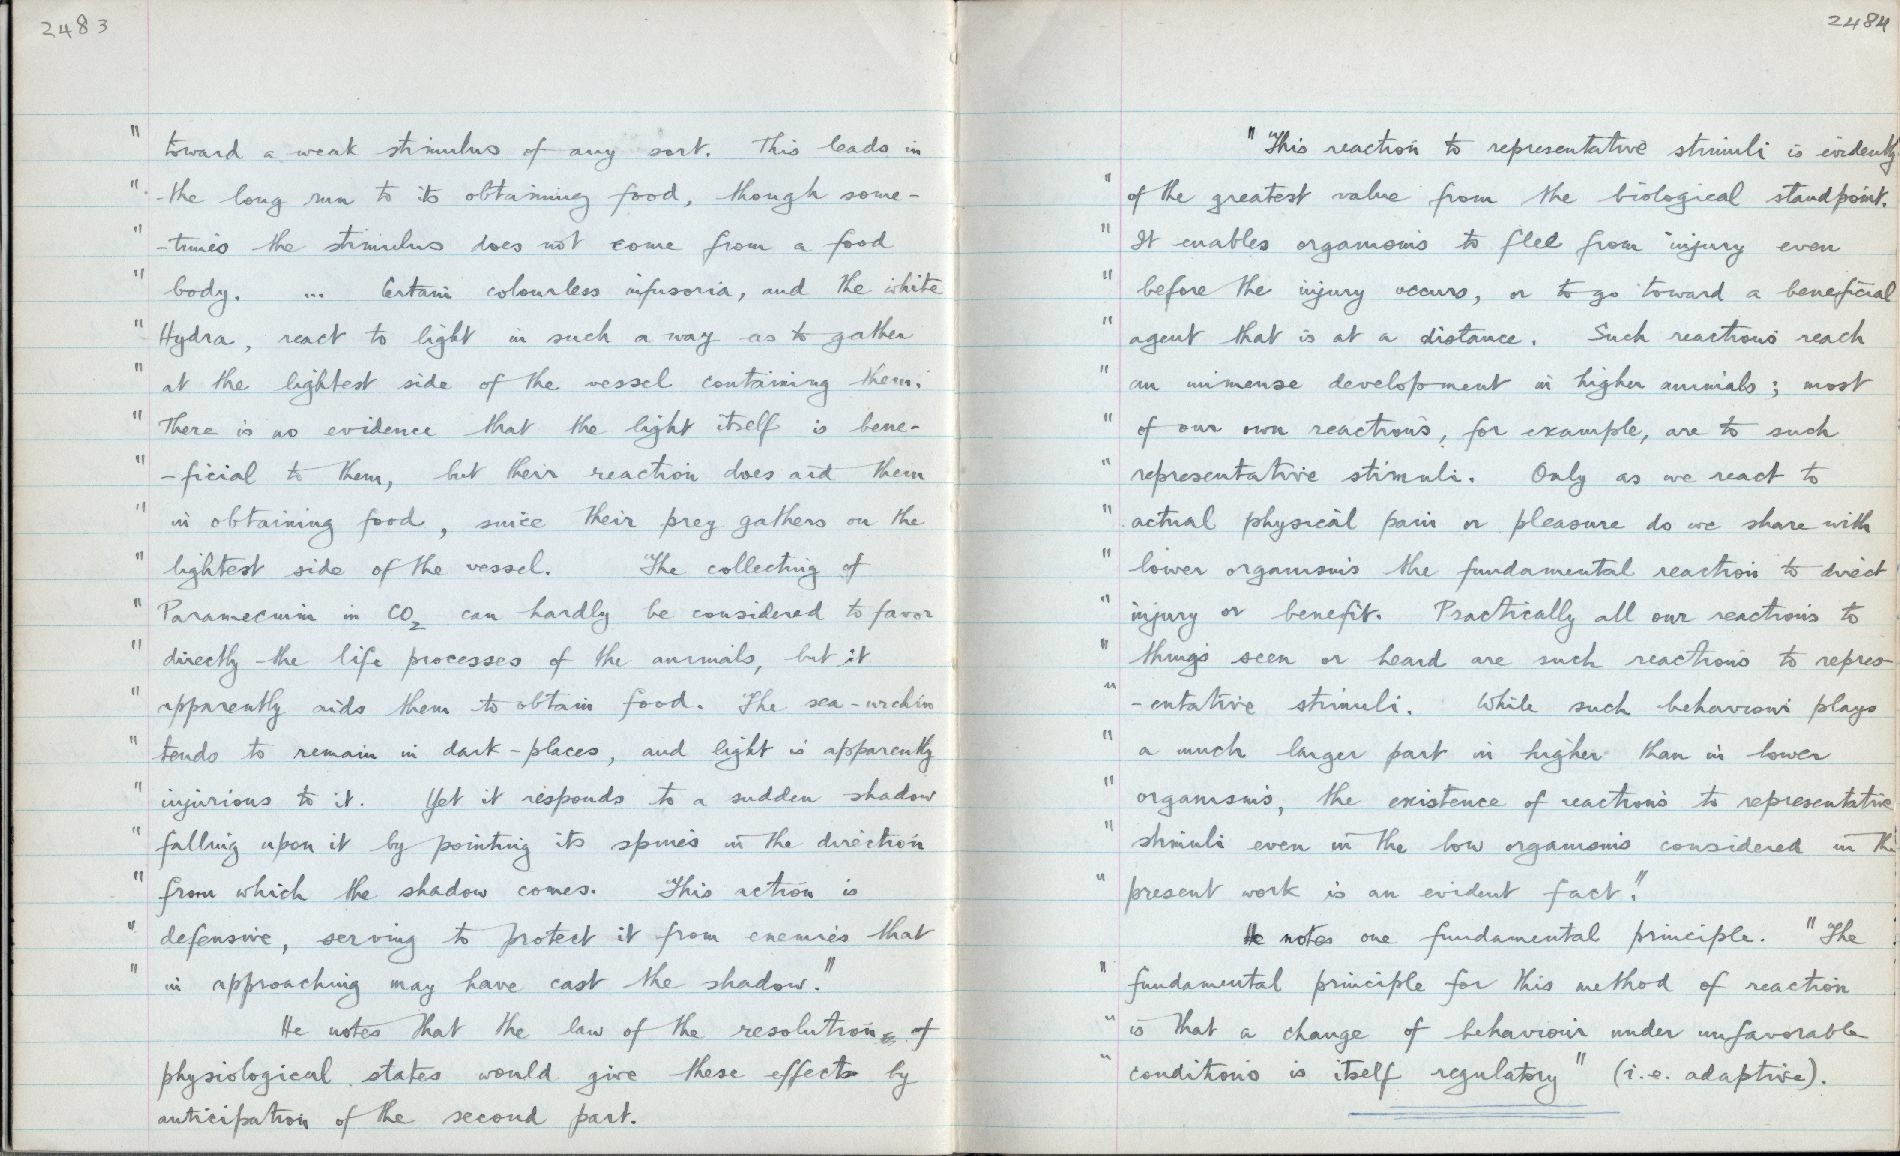 2483
" toward a weak stimulus of any sort. This leads in
" the long run to its obtaining food, though some-
" -times the stimulus does not come from a food
" body. ... Certain colourless infusoria, and the white
" Hydra, react to light in such a way as to gather
" at the lightest side of the vessel containing them.
" There is no evidence that the light itself is bene-
" -ficial to them, but their reaction does aid them
" in obtaining food, since their prey gathers on the
" lightest side of the vessel. The collecting of
" Paramecium in CO₂ can hardly be considered to favor
" directly the life processes of the animals, but it
" apparently aids them to obtain food. The sea-urchin
" tends to remain in dark-places, and light is apparently
" injurious to it. Yet it responds to a sudden shadow
" falling upon it by pointing its spines in the direction
" from which the shadow comes. This action is
" defensive, serving to protect it from enemies that
" in approaching may have cast the shadow."
He notes that the law of the resolution of
physiological states would give these effects by
anticipation of the second part.
2484
" This reaction to representative stimuli is evidently
" of the greatest value from the biological standpoint.
" It enables organisms to flee from injury even
" before the injury occurs, or to go toward a beneficial
" agent that is at a distance. Such reactions reach
" an immense development in higher animals; most
" of our own reactions, for example, are to such
" representative stimuli. Only as we react to
" actual physical pain or pleasure do we share with
" lower organisms the fundamental reaction to direct
" injury or benefit. Practically all our reactions to
" things seen or heard are such reactions to repres-
" -entative stimuli. While such behaviour plays
" a much larger part in higher than in lower
" organisms, the existence of reactions to representative
" stimuli even in the low organisms considered in the
" present work is an evident fact."
He notes one fundamental principle. "The
" fundamental principle for this method of reaction
" is that a change of behaviour under unfavorable
" conditions is itself regulatory" (i.e. adaptive).